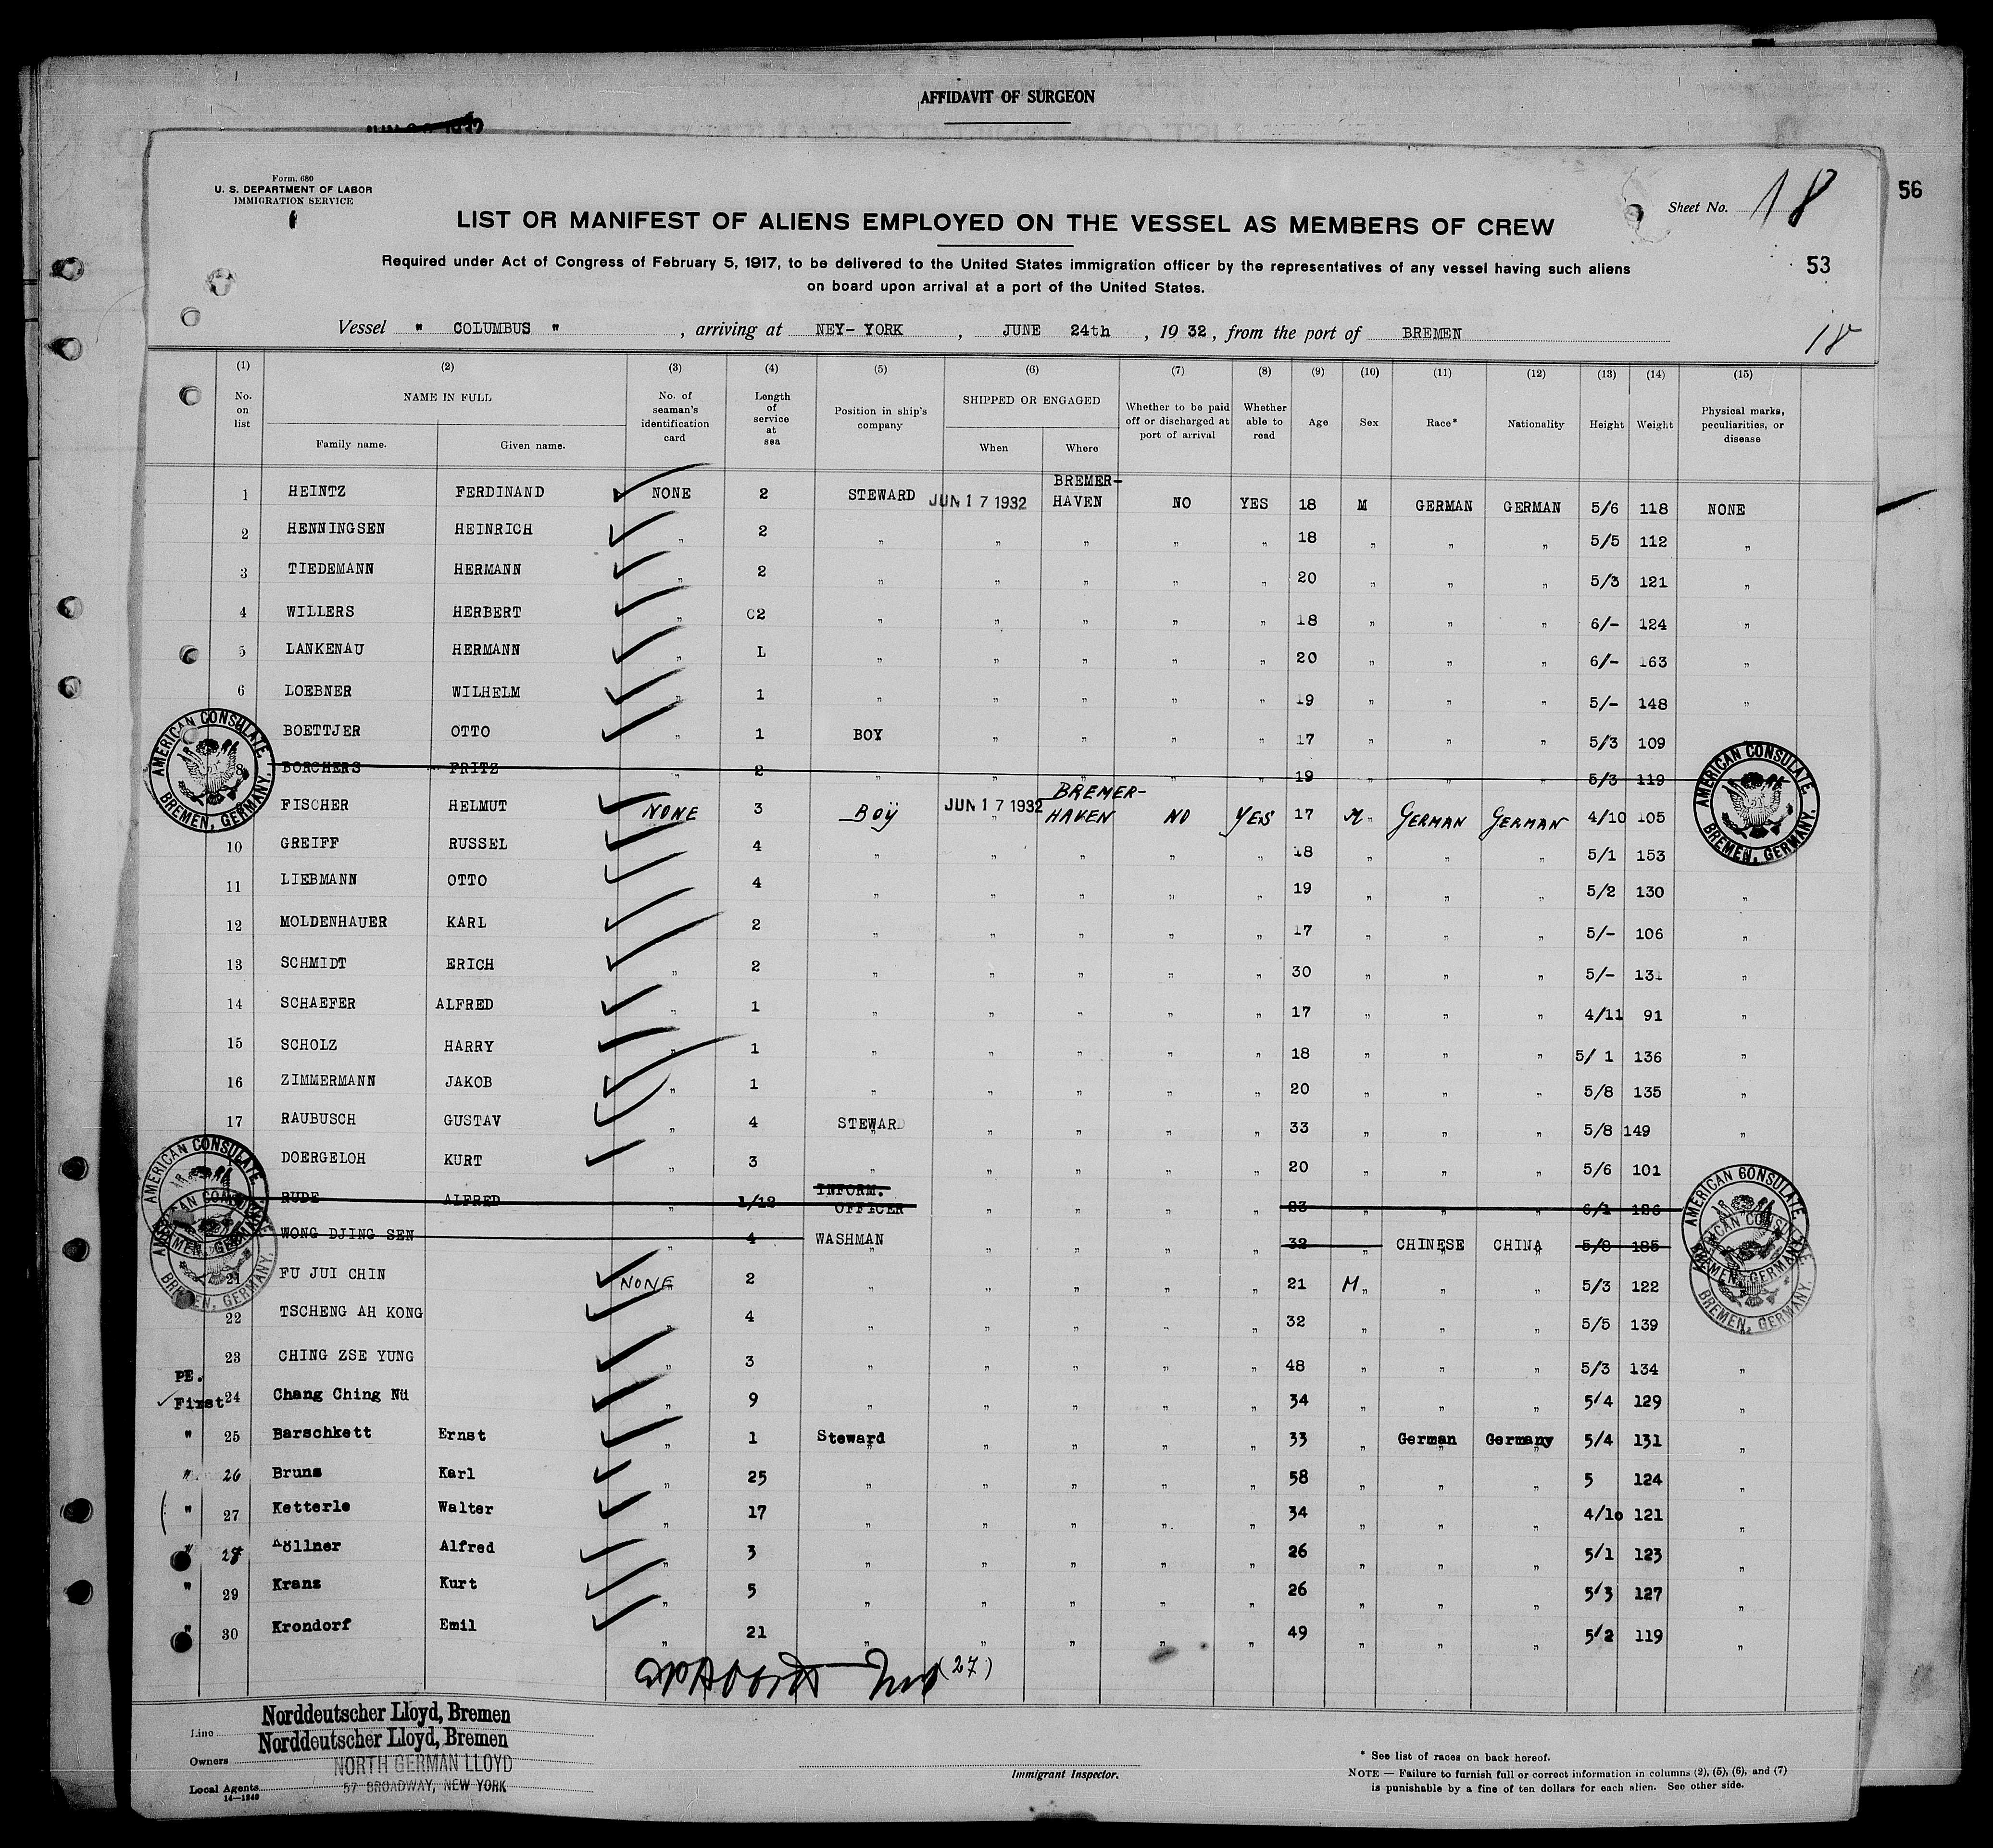 AFFIDAVIT OF SURGEON
Form. 680
U. S. DEPARTMENT OF LABOR
IMMIGRATION SERVICE
Sheet No. 18
56
LIST OR MANIFEST OF ALIENS EMPLOYED ON THE VESSEL AS MEMBERS OF CREW
Required under Act of Congress of February 5, 1917, to be delivered to the United States immigration officer by the representatives of any vessel having such aliens
on board upon arrival at a port of the United States.
53
Vessel " COLUMBUS " , arriving at NEY- YORK , JUNE 24th , 19 32, from the port of BREMEN
18
(1) (2) (3) (4) (5) (6) (7) (8) (9) (10) (11) (12) (13) (14) (15)
No. on list NAME IN FULL Family name. Given name. No. of seaman's identification card Length of service at sea Position in ship's company SHIPPED OR ENGAGED When Where Whether to be paid off or discharged at port of arrival Whether able to read Age Sex Race* Nationality Height Weight Physical marks, peculiarities, or disease
1 HEINTZ FERDINAND NONE 2 STEWARD JUN 17 1932 BREMER-HAVEN NO YES 18 M GERMAN GERMAN 5/6 118 NONE
2 HENNINGSEN HEINRICH " 2 " " " " " 18 " " " 5/5 112 "
3 TIEDEMANN HERMANN " 2 " " " " " 20 " " " 5/3 121 "
4 WILLERS HERBERT " C2 " " " " " 18 " " " 6/- 124 "
5 LANKENAU HERMANN " L " " " " " 20 " " " 6/- 163 "
6 LOEBNER WILHELM " 1 " " " " " 19 " " " 5/- 148 "
BOETTJER OTTO " 1 BOY " " " " 17 " " " 5/3 109
8 BORCHERS FRITZ " 2 " " " " " 19 " " " 5/3 119
FISCHER HELMUT NONE 3 BOY JUN 17 1932 BREMER-HAVEN NO YES 17 M GERMAN GERMAN 4/10 105
10 GREIFF RUSSEL 4 " " " " " 18 " " " 5/1 153
11 LIEBMANN OTTO 4 " " " " " 19 " " " 5/2 130 "
12 MOLDENHAUER KARL 2 " " " " " 17 " " " 5/- 106 "
13 SCHMIDT ERICH " 2 " " " " " 30 " " " 5/- 131 "
14 SCHAEFER ALFRED " 1 " " " " " 17 " " " 4/11 91 "
15 SCHOLZ HARRY " 1 " " " " " 18 " " " 5/ 1 136 "
16 ZIMMERMANN JAKOB " 1 " " " " " 20 " " " 5/8 135 "
17 RAUBUSCH GUSTAV " 4 STEWARD " " " " 33 " " " 5/8 149 "
DOERGELOH KURT " 3 " " " " " 20 " " " 5/6 101
RUDE ALFRED " 1/12 INFORM. OFFICER " " " " 23 " " " 6/1 126
WONG DJING SEN 4 WASHMAN " " " " 32 " CHINESE CHINA 5/8 185
21 FU JUI CHIN NONE 2 " " " " " 21 M " " 5/3 122
22 TSCHENG AH KONG " 4 " " " " " 32 " " " 5/5 139
23 CHING ZSE YUNG " 3 " " " " " 48 " " " 5/3 134 "
PE.
First 24 Chang Ching Nü " 9 " " " " " 34 " " " 5/4 129 "
" 25 Barschkett Ernst " 1 Steward " " " " 33 " German Germany 5/4 131 "
" 26 Bruns Karl " 25 " " " " " 58 " " " 5 124 "
" 27 Ketterle Walter " 17 " " " " " 34 " " " 4/10 121 "
" 28 Köllner Alfred " 3 " " " " " 26 " " " 5/1 123 "
" 29 Kranz Kurt " 5 " " " " " 26 " " " 5/3 127 "
" 30 Krondorf Emil " 21 " " " " " 49 " " " 5/2 119 "
(27)
AMERICAN CONSULATE BREMEN, GERMANY.
AMERICAN CONSULATE BREMEN, GERMANY.
AMERICAN CONSULATE BREMEN, GERMANY.
AMERICAN CONSULATE BREMEN, GERMANY.
Line Norddeutscher Lloyd, Bremen
Owners Norddeutscher Lloyd, Bremen
NORTH GERMAN LLOYD
Local Agents 57 BROADWAY, NEW YORK
14—1240
Immigrant Inspector.
* See list of races on back hereof.
NOTE — Failure to furnish full or correct information in columns (2), (5), (6), and (7)
is punishable by a fine of ten dollars for each alien. See other side.